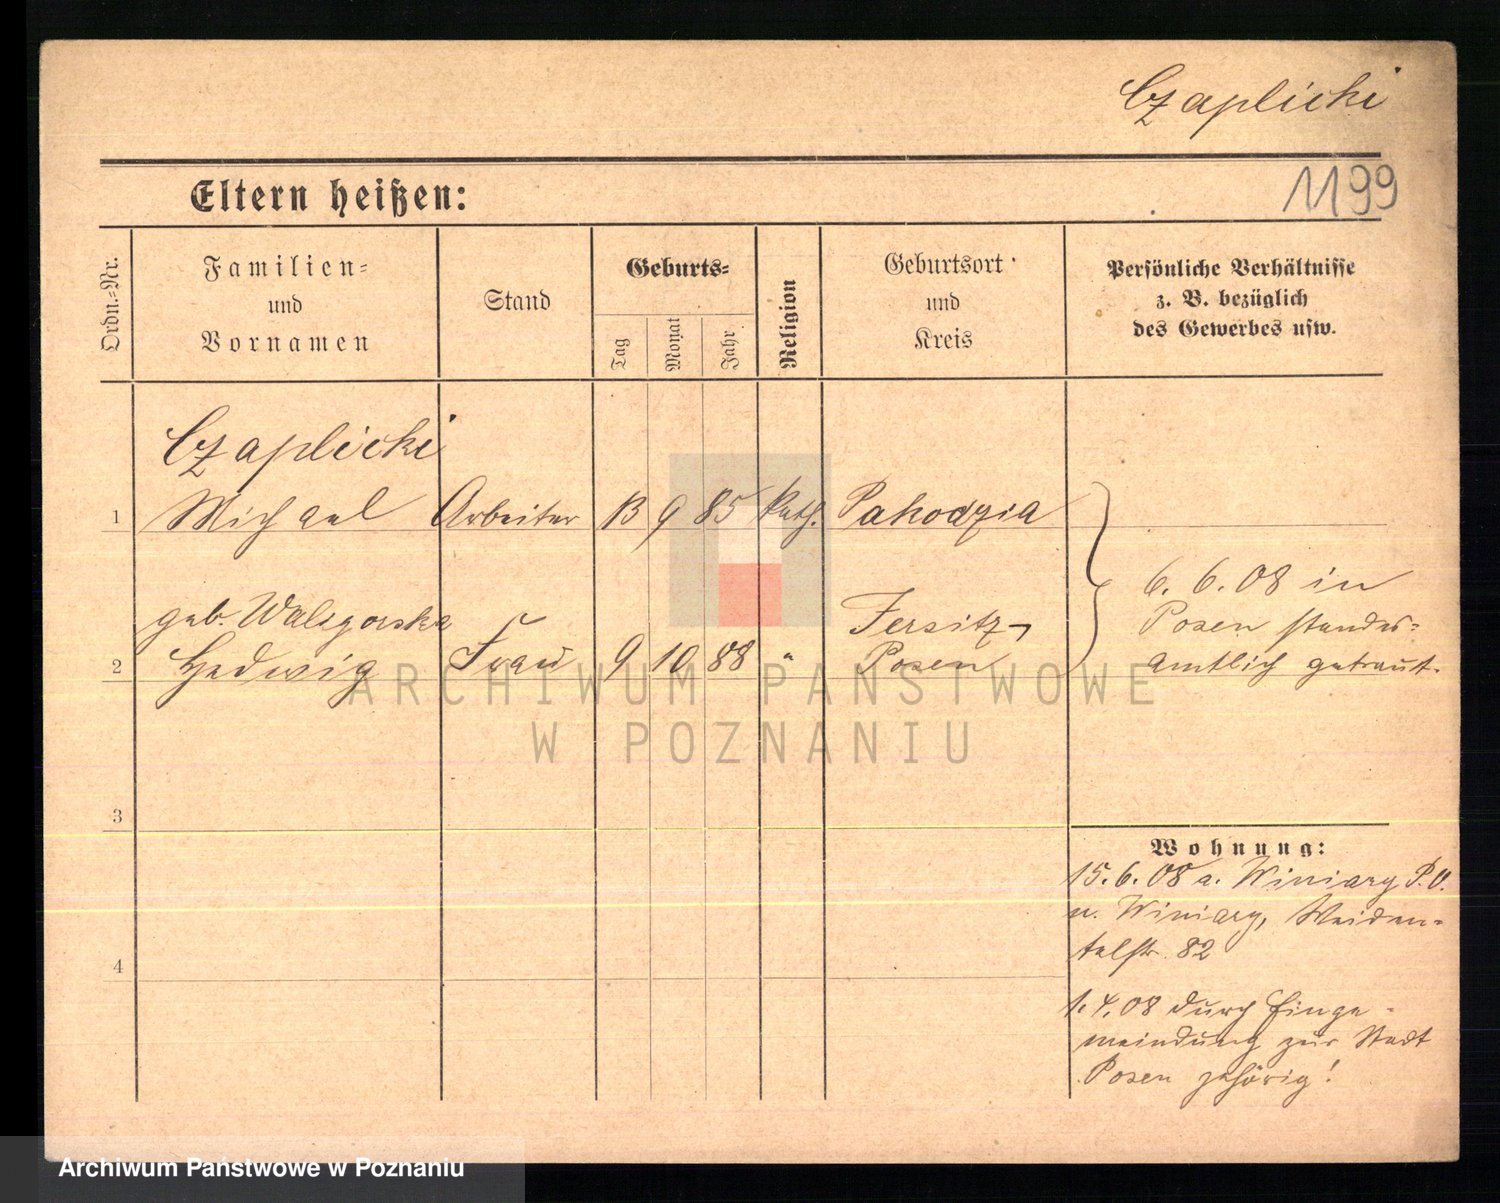 Czaplicki
Eltern heißen:
1199
Ordn.-Nr.
Familien-
und
Vornamen
Stand
Geburts-
Tag
Monat
Jahr
Religion
Geburtsort
und
Kreis
Persönliche Verhältnisse
z. B. bezüglich
des Gewerbes usw.
Czaplicki
1 Michael Arbeiter 13 9 85 kath. Pakodzia
geb. Waligorska
2 Hedwig Frau 9 10 88 "
Jersitz-
Posen
6. 6. 08 in
Posen standes-
amtlich getraut.
ARCHIWUM PAŃSTWOWE
W POZNANIU
3
Wohnung:
15.6.08 a. Winiary P.O.
n. Winiary, Weiden-
talstr. 82
4
1.4.08 durch Einge-
meindung zur Stadt
Posen gehörig!
Archiwum Państwowe w Poznaniu